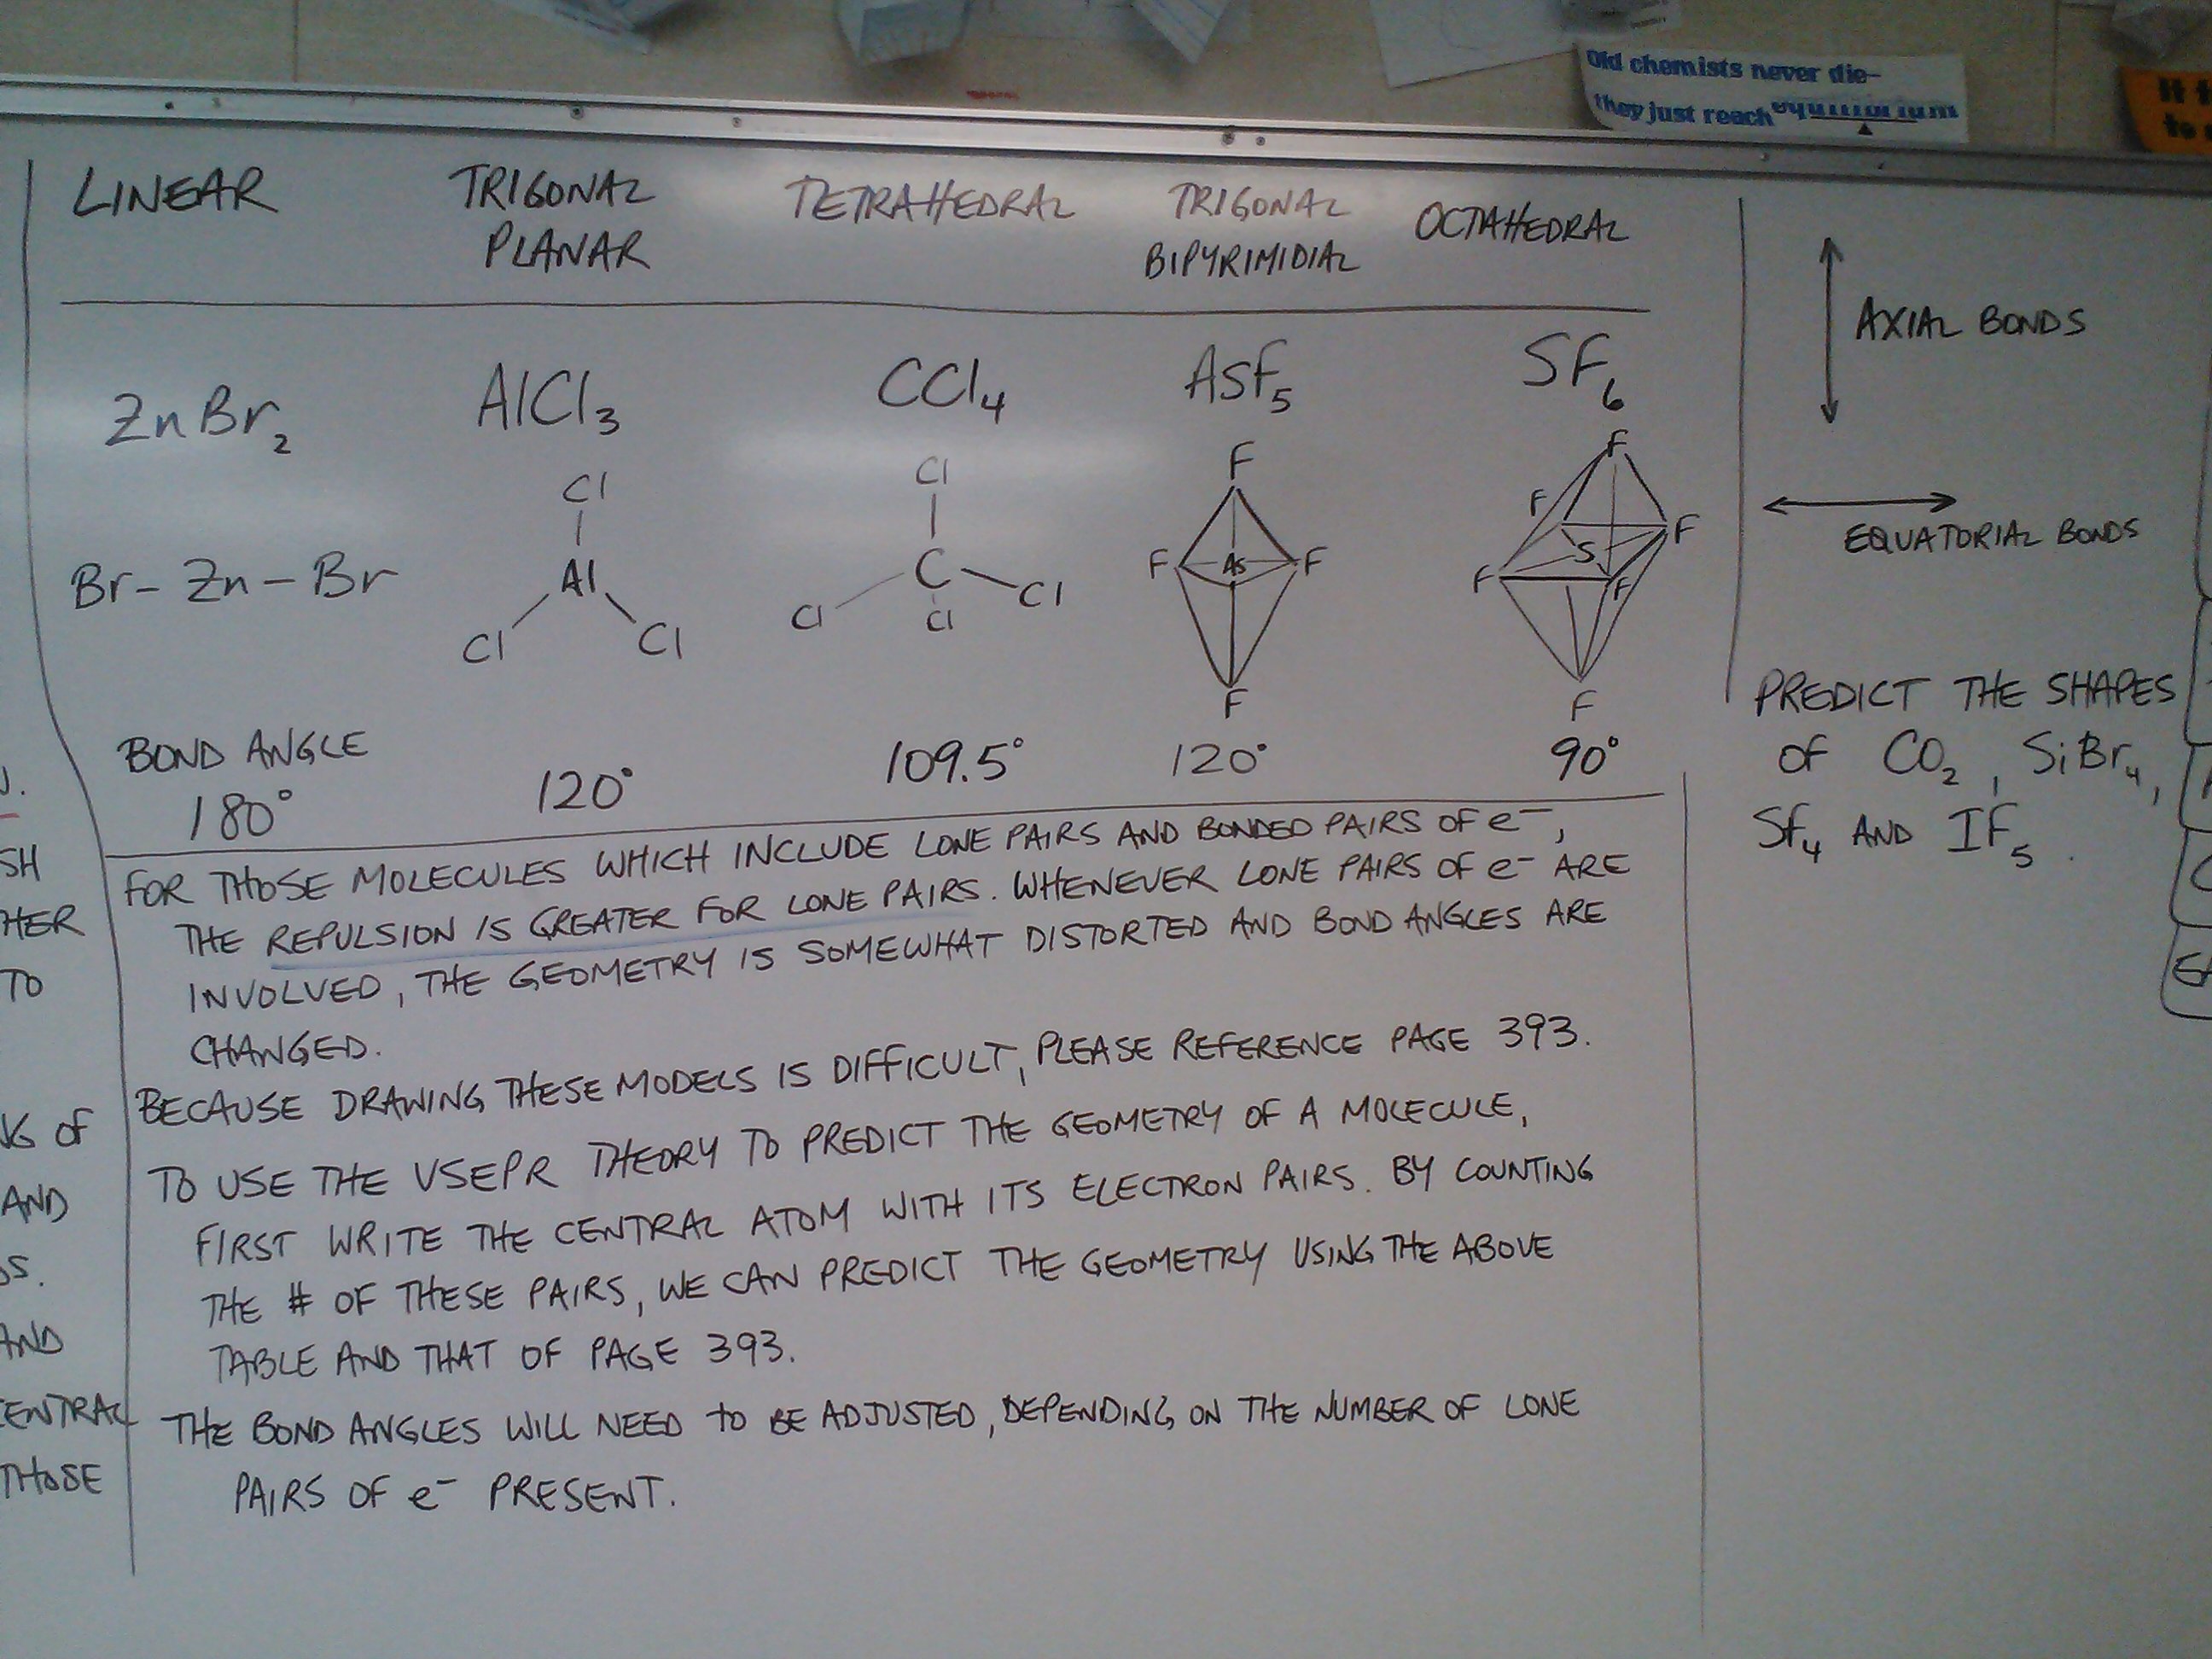 Old chemists never die-
they just reach equilibrium
LINEAR
TRIGONAL
PLANAR
TETRAHEDRAL
TRIGONAL
BIPYRIMIDIAL
OCTAHEDRAL
ZnBr2
AlCl3
CCl4
AsF5
SF6
Br- Zn - Br
Cl
Al
Cl
Cl
Cl
C
Cl
Cl
Cl
F
F
As
F
F
F
F
F
S
F
F
F
BOND ANGLE
180°
120°
109.5°
120°
90°
FOR THOSE MOLECULES WHICH INCLUDE LONE PAIRS AND BONDED PAIRS OF e⁻,
THE REPULSION IS GREATER FOR LONE PAIRS. WHENEVER LONE PAIRS OF e⁻ ARE
INVOLVED, THE GEOMETRY IS SOMEWHAT DISTORTED AND BOND ANGLES ARE
CHANGED.
BECAUSE DRAWING THESE MODELS IS DIFFICULT, PLEASE REFERENCE PAGE 393.
TO USE THE VSEPR THEORY TO PREDICT THE GEOMETRY OF A MOLECULE,
FIRST WRITE THE CENTRAL ATOM WITH ITS ELECTRON PAIRS. BY COUNTING
THE # OF THESE PAIRS, WE CAN PREDICT THE GEOMETRY USING THE ABOVE
TABLE AND THAT OF PAGE 393.
THE BOND ANGLES WILL NEED TO BE ADJUSTED, DEPENDING ON THE NUMBER OF LONE
PAIRS OF e⁻ PRESENT.
AXIAL BONDS
EQUATORIAL BONDS
PREDICT THE SHAPES
OF CO2, SiBr4,
SF4 AND IF5.
TO
OF
AND
AND
THOSE